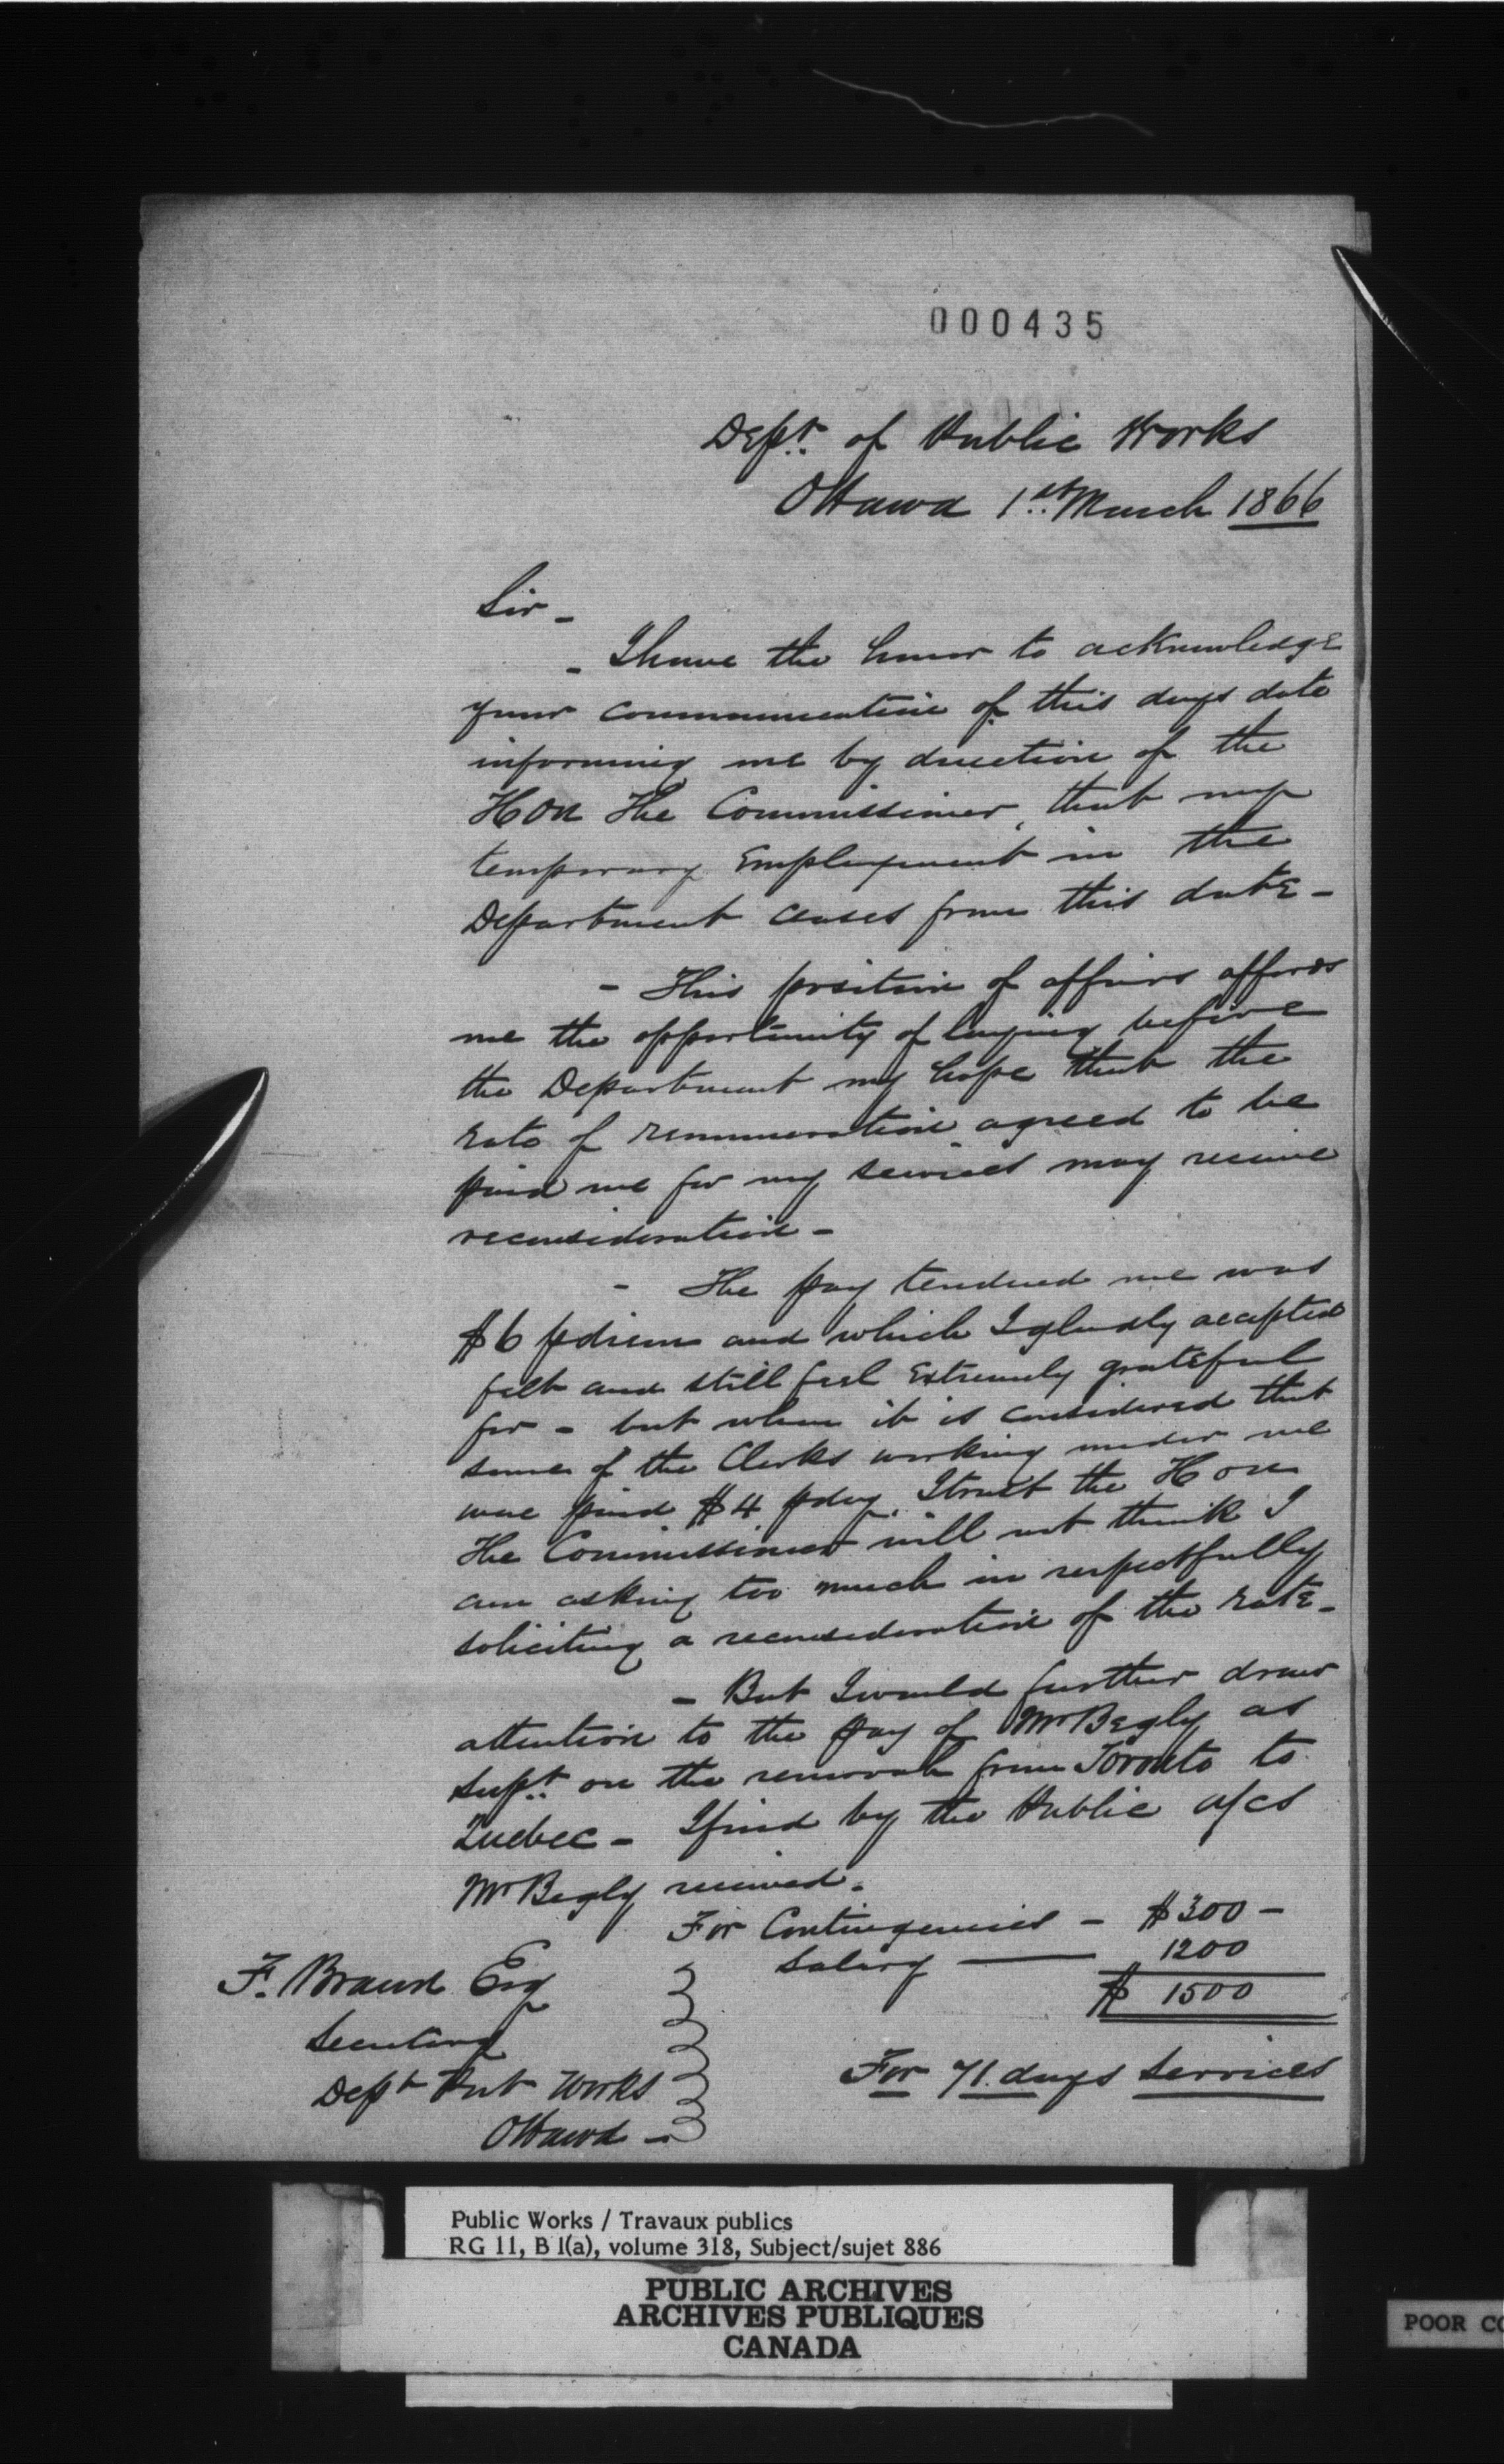 000435
Dept. of Public Works
Ottawa 1st March 1866
Sir -
- I have the honor to acknowledge
your communication of this days date
informing me by direction of the
Hon The Commissioner, that my
temporary Employment in the
Department ceases from this date -
- This position of affairs affords
me the opportunity of laying before
the Department my hope that the
rate of remuneration agreed to be
paid me for my services may receive
reconsideration -
- The pay tendered me was
$6 pdiem and which I gladly accepted
felt and still feel Extremely grateful
for - but when it is considered that
some of the Clerks working under me
were paid $4 pday, I trust the Hon
The Commissioner will not think I
am asking too much in respectfully
soliciting a reconsideration of the rate -
- But I would further draw
attention to the pay of Mr Begly as
Supt. on the removal from Toronto to
Quebec - I find by the Public a/cs
Mr Begly received.
For Contingencies - $300 -
Salary — 1200
$ 1500
For 71. days Services
F. Braun Esq
Secretary
Dept Pub Works
Ottawa -
Public Works / Travaux publics
RG 11, B 1(a), volume 318, Subject/sujet 886
PUBLIC ARCHIVES
ARCHIVES PUBLIQUES
CANADA
POOR CO